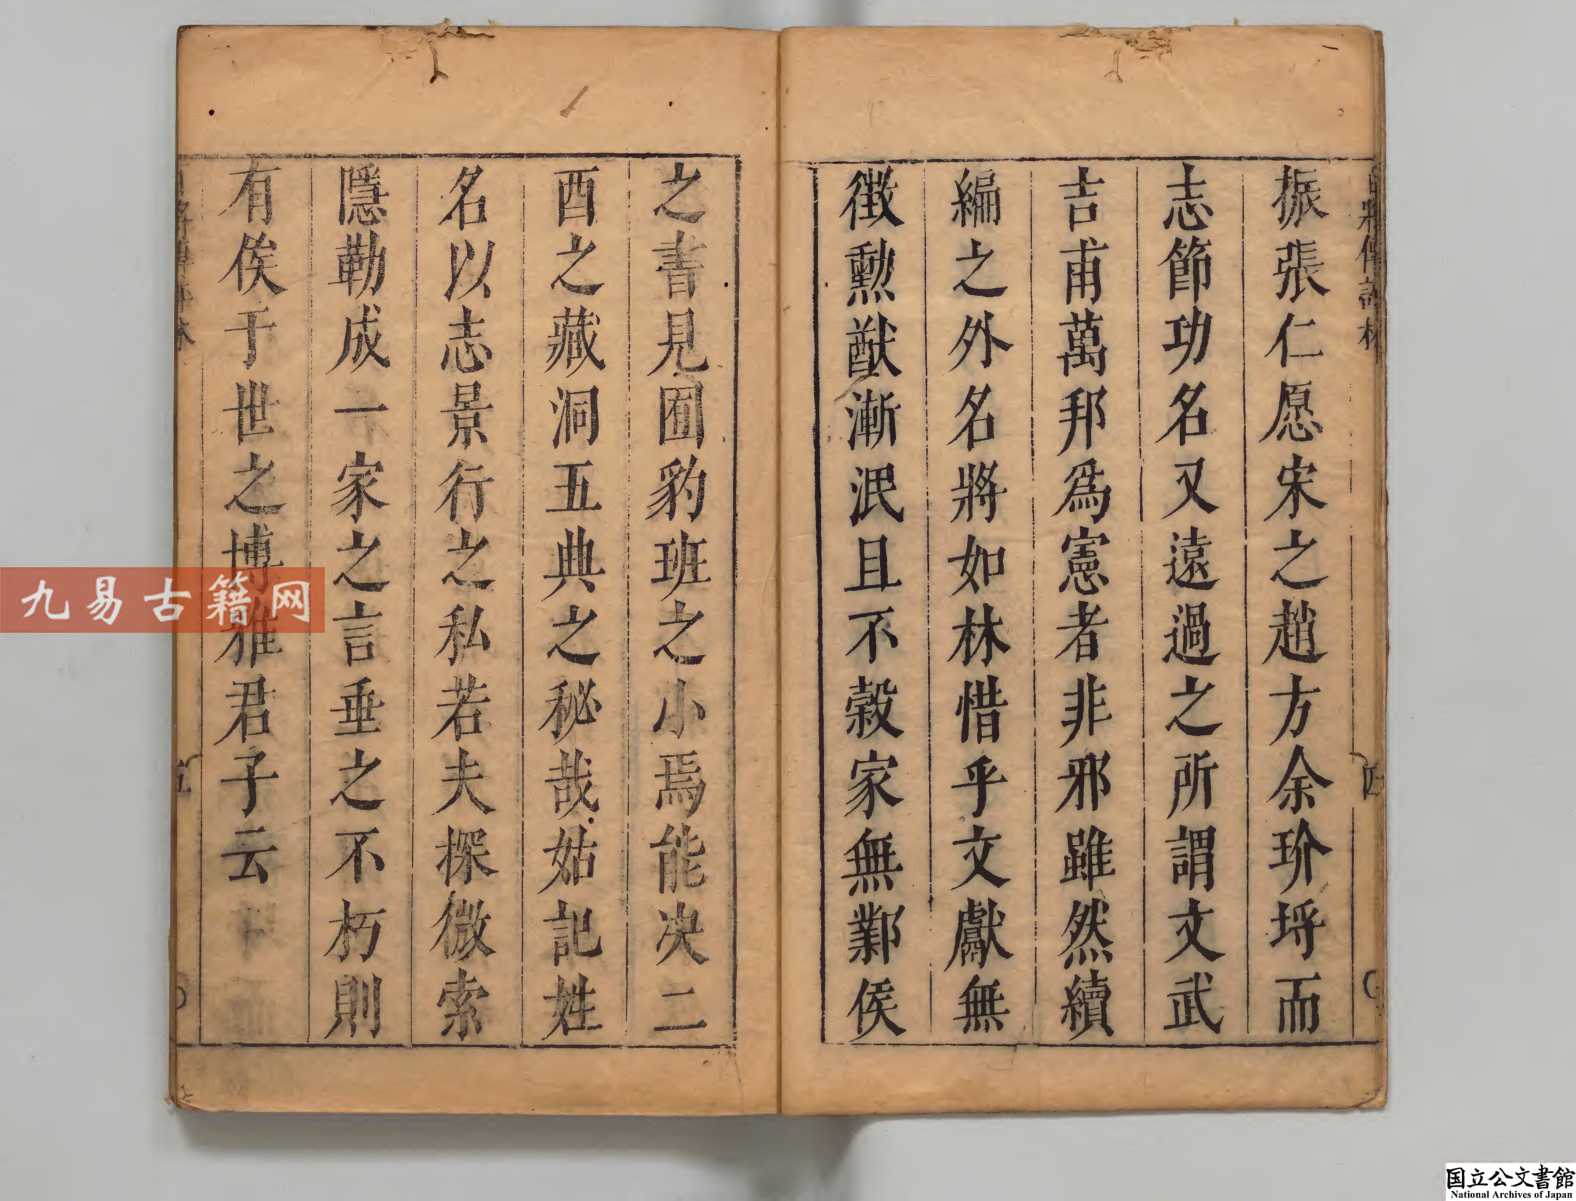 振張仁愿宋之趙方余玠埒而
志節功名又遠過之所謂文武
吉甫萬邦為憲者非邪雖然續
編之外名將如林惜乎文獻無
徵勲猷漸泯且不穀家無鄴侯
之書見囿豹班之小焉能决二
酉之藏洞五典之秘哉姑記姓
名以志景行之私若夫探微索
隱勒成一家之言垂之不朽則
有俟于世之博雅君子云
九易古籍网
国立公文書館
National Archives of Japan